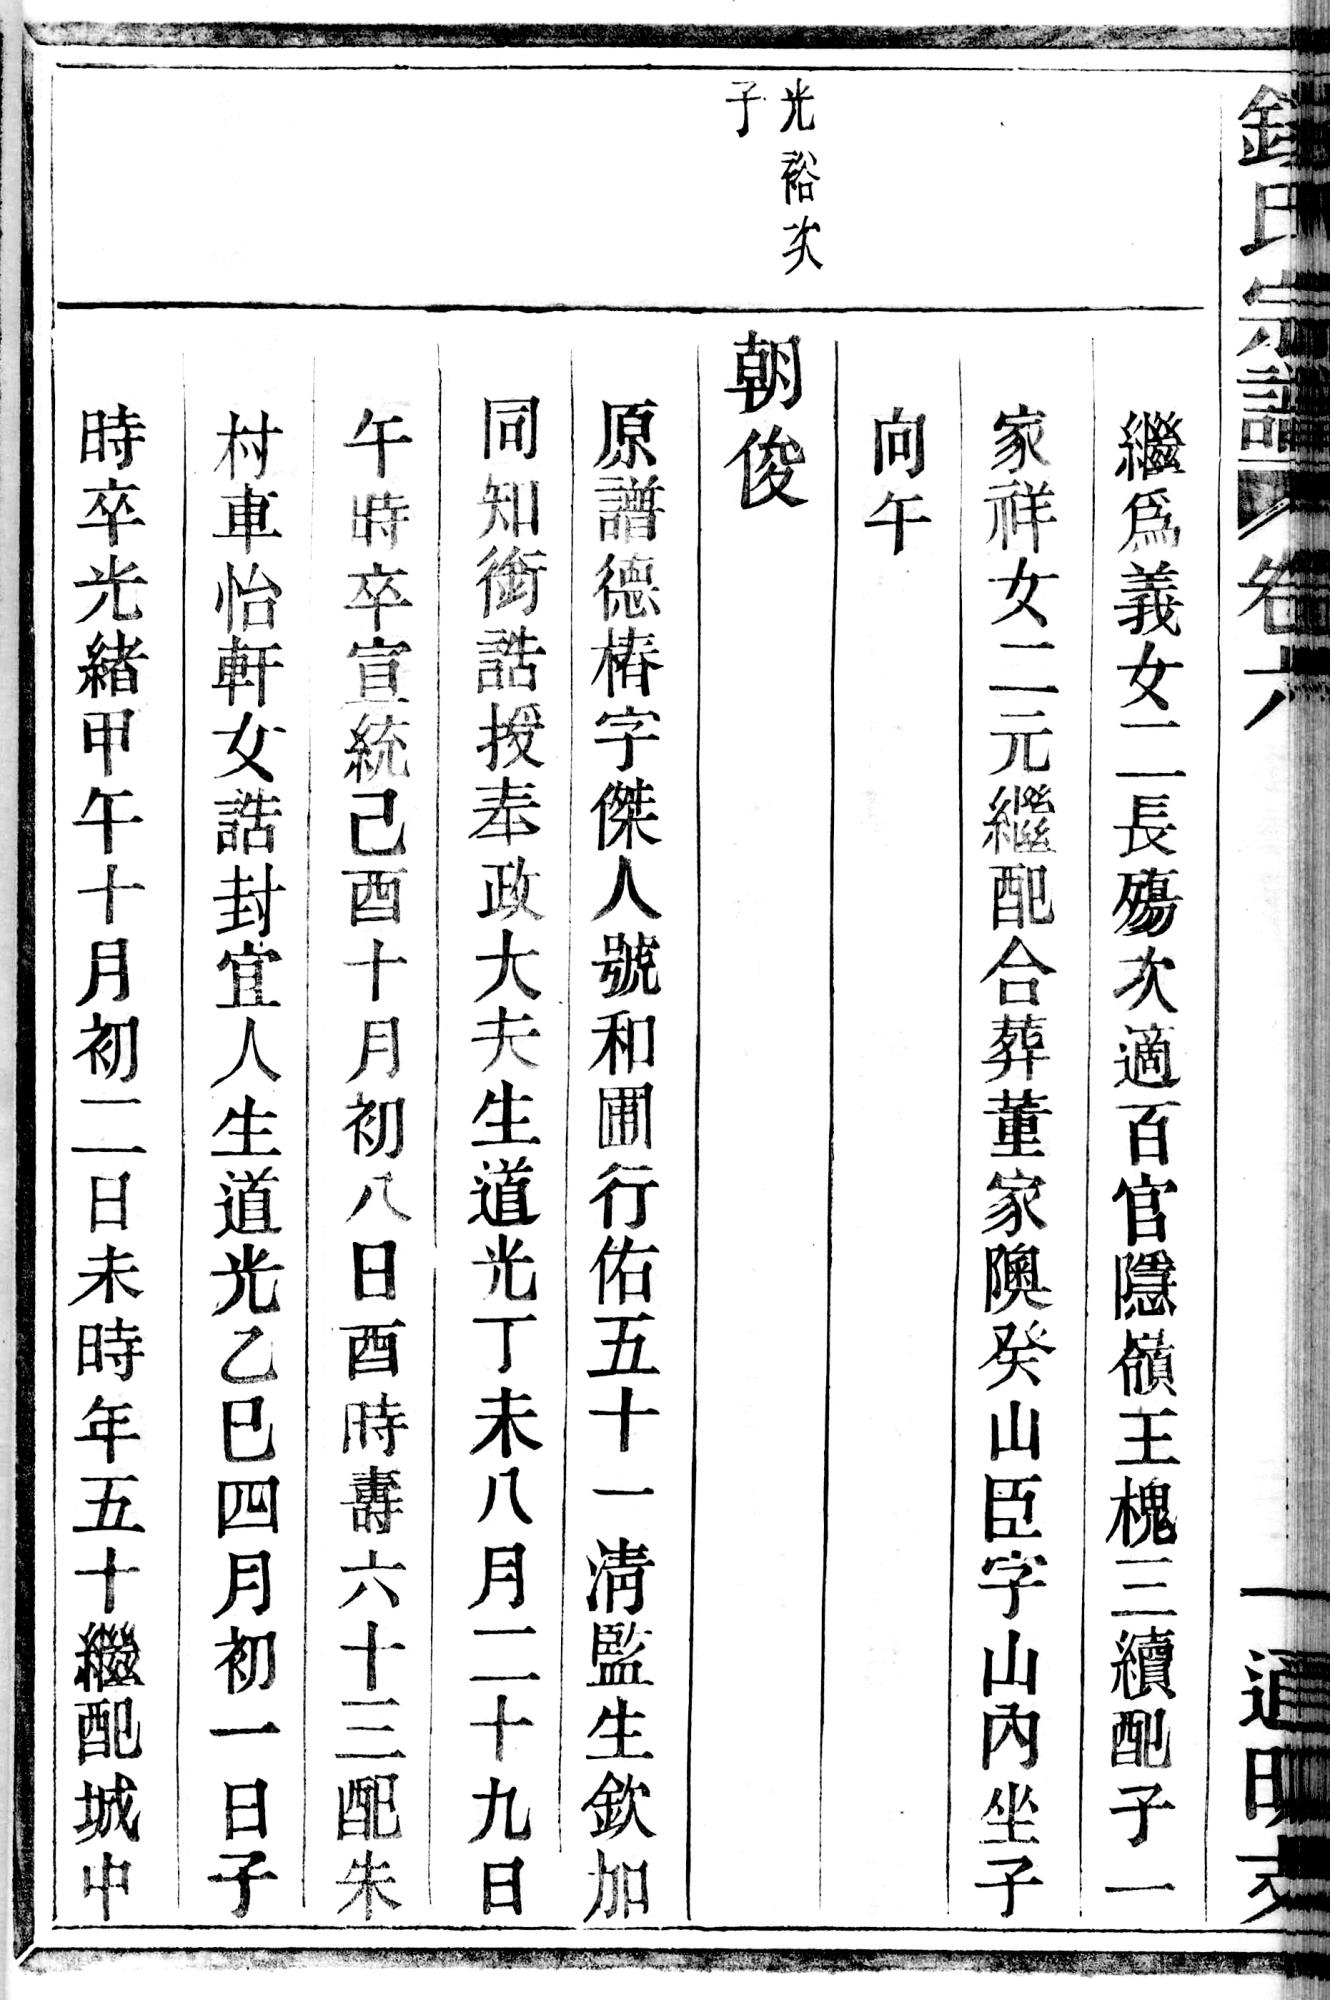 氏宗譜 卷六 一 通明
繼爲義女二長殤次適百官隱嶺王槐三續配子一
家祥女二元繼配合葬董家隩癸山臣字山內坐子
向午
光裕次
子
朝俊
原譜德椿字傑人號和圃行佑五十一清監生欽加
同知銜誥授奉政大夫生道光丁未八月二十九日
午時卒宣統己酉十月初八日酉時壽六十三配朱
村車怡軒女誥封宜人生道光乙巳四月初一日子
時卒光緒甲午十月初二日未時年五十繼配城中